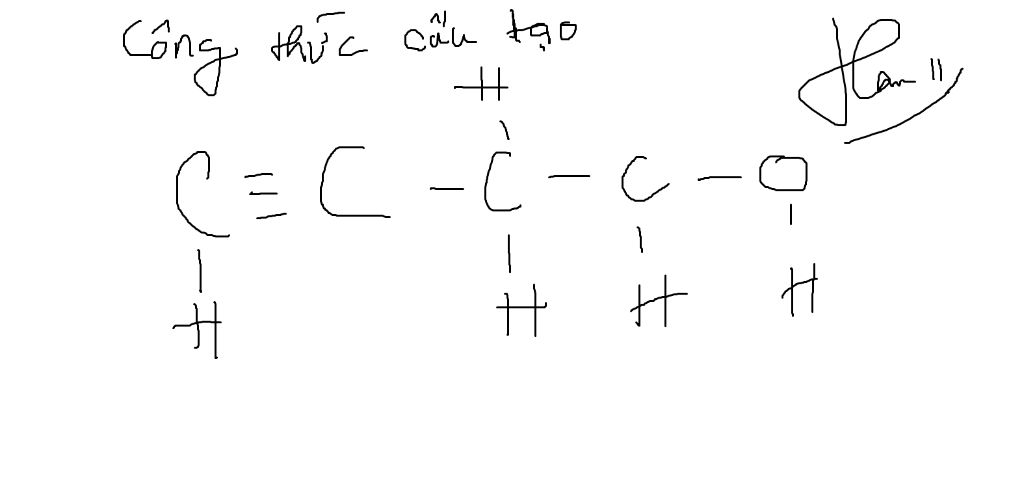 Công thức cấu tạo
H
C ≡ C - C - C - O
H H H H